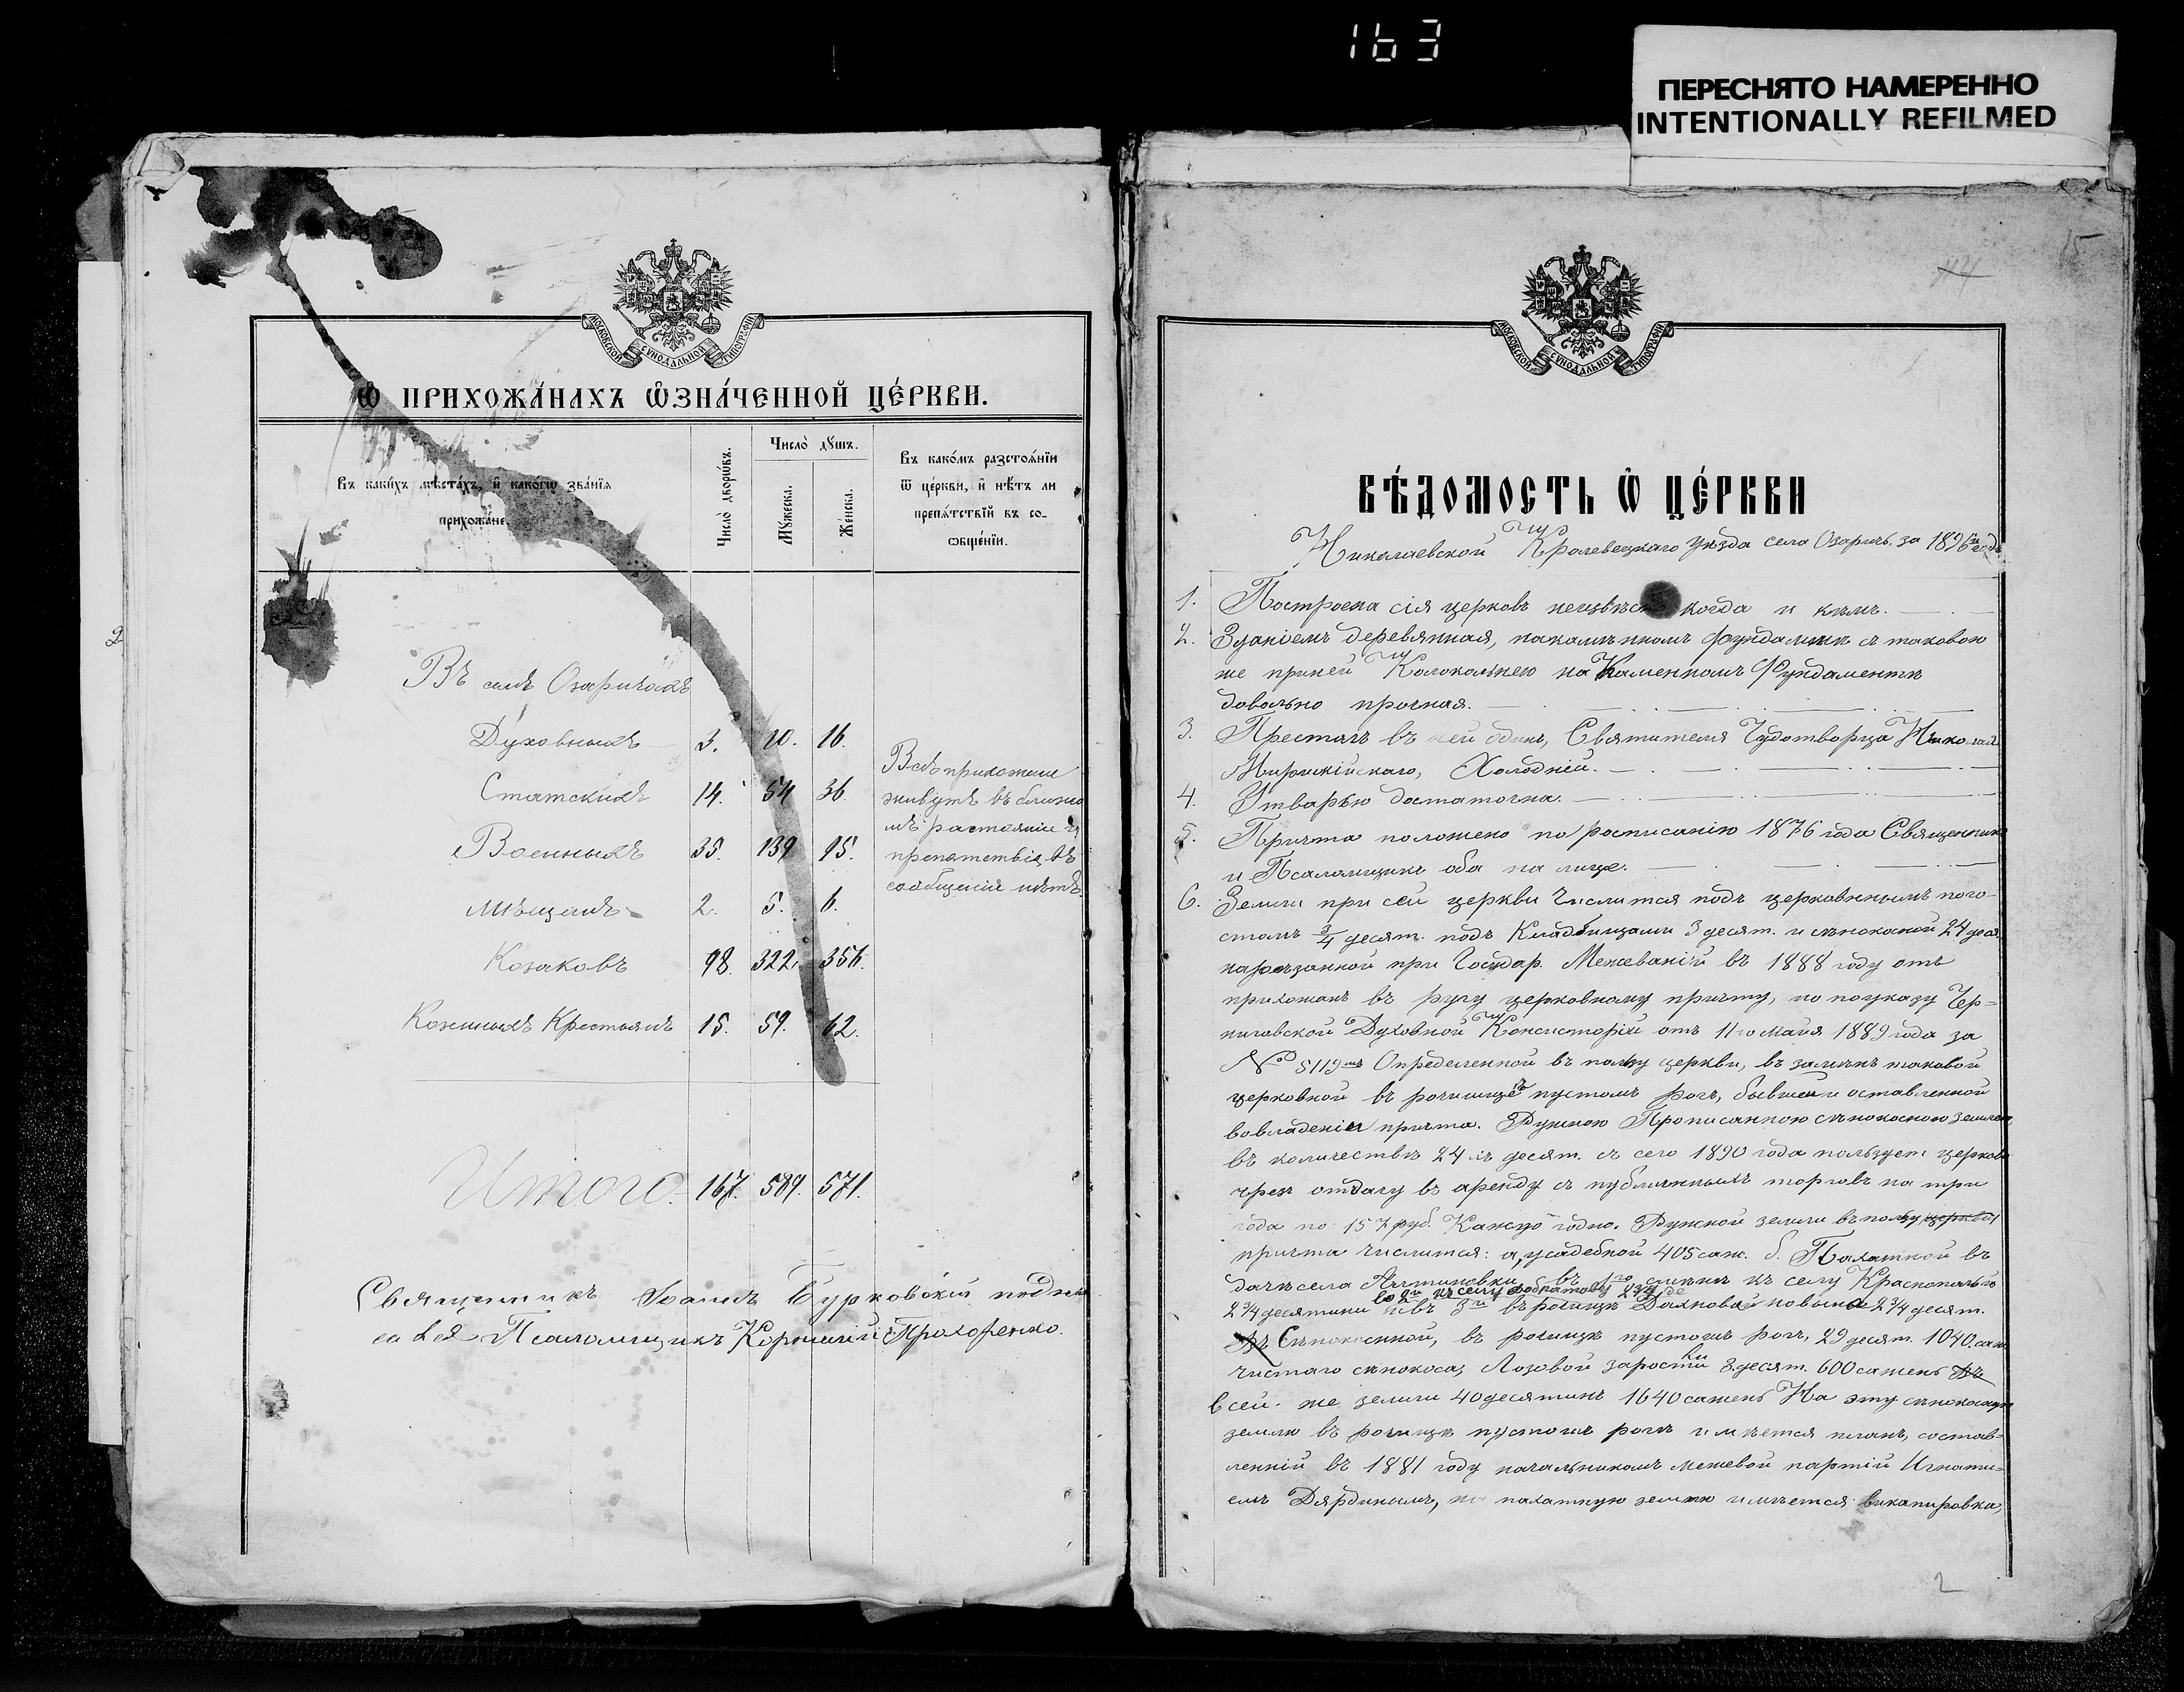 163
ПЕРЕСНЯТО НАМЕРЕННО
INTENTIONALLY REFILMED
2
МОСКОВСКОЙ СУНОДАЛЬНОЙ ТИПОГРАФІИ
Ѽ ПРИХОЖА́НАХЪ ѼЗНА́ЧЕННОЙ ЦЕ́РКВИ.
Въ каки́хъ мѣста́хъ, и҆ како́гѡ зва́нїѧ
прихожа́не.
Число̀ дворѡ́въ.
Число̀ дꙋ́шъ.
Мꙋ́жеска.
Же́нска.
Въ како́мъ разстоѧ́нїи
ѿ це́ркви, и҆ нѣ́тъ ли
препѧ́тствїй въ со-
ѻбще́нїи.
Въ селѣ Озаричахъ
Духовныхъ 3. 10. 16.
Статскихъ 14. 54 36.
Военныхъ 35. 139 95.
Мѣщанъ 2. 5. 6.
Козаковъ 98. 322. 356.
Крестьянъ 15. 59. 62.
Всѣ прихожане
живутъ въ близко
мъ растояніи и
препятствія въ
сообщеніи нѣтъ.
Итого. 167. 589. 571.
Священникъ Іоаннъ Бурковскій
Псаломщикъ Корнилій Прохоренко.
15
44
МОСКОВСКОЙ СУНОДАЛЬНОЙ ТИПОГРАФІИ
ВѢ́ДОМОСТЬ Ѽ ЦЕ́РКВИ
Николаевской Кролевецкаго Уѣзда села Озаричъ за 1896й годъ
1. Построена сія церковь неизвѣстно когда и кѣмъ.
2. Зданіемъ деревянная, накаменномъ фундаментѣ съ таковою
же приней Колокольнею на Каменномъ Фундаментѣ
довольно прочная.
3. Престолъ въ ней одинъ, Святителя Чудотворца Николая
Мирикійскаго, Холодній.
4. Утварью достаточна.
5. Причта положено по росписанію 1876 года Священникъ
и Псаломщикъ оба на лице.
6. Земли при сей церкви Числится подъ церковнымъ пого-
стомъ 3/4 десят. подъ Кладбищами 3 десят. и сѣнокосной 24 деся.
нарѣзанной при Государ. Межеваніи въ 1888 году отъ
прихожанъ въ ругу церковному причту, но поуказу Чер=
ниговской Духовной Консисторіи отъ 11го Мая 1889 года за
№ 5119мъ Определенной въ ползу церкви, въ замѣнъ таковой
церковной въ рочищѣ пустомъ рогъ, бывшей оставленной
вовладеніи причта. Ружною Прописанною сѣнокосною землею
въ количествѣ 24хъ десят. съ сего 1890 года пользует церковь
чрезъ отдачу въ аренду съ публичныхъ торговъ на три
года по 157 руб. Каждо годно. Ружной земли въ ползу церкви
причта числится: а, усадебной 405 саж. б. Пахатной въ
дачѣ села Алтиновки въ 1го смѣнѣ къ селу Краснополью
во 2й къ селу 2 3/4 де
2 3/4 десятини и въ 3й въ рочищѣ 2 3/4 десят.
Въ Сѣнокосной, въ рочищѣ пустошъ рогъ, 29 десят. 1040 саж.
чистаго сѣнокоса, Лозовой заростки 3 десят. 600 сажень
всей же земли 40 десятинъ 1640 сажень На эту сѣнокосную
землю въ рочищѣ пустошъ рогъ имѣется планъ, состав=
ленній въ 1881 году начальникомъ межевой партіи Игнати=
емъ пахатную землю имѣется викапировка,
2